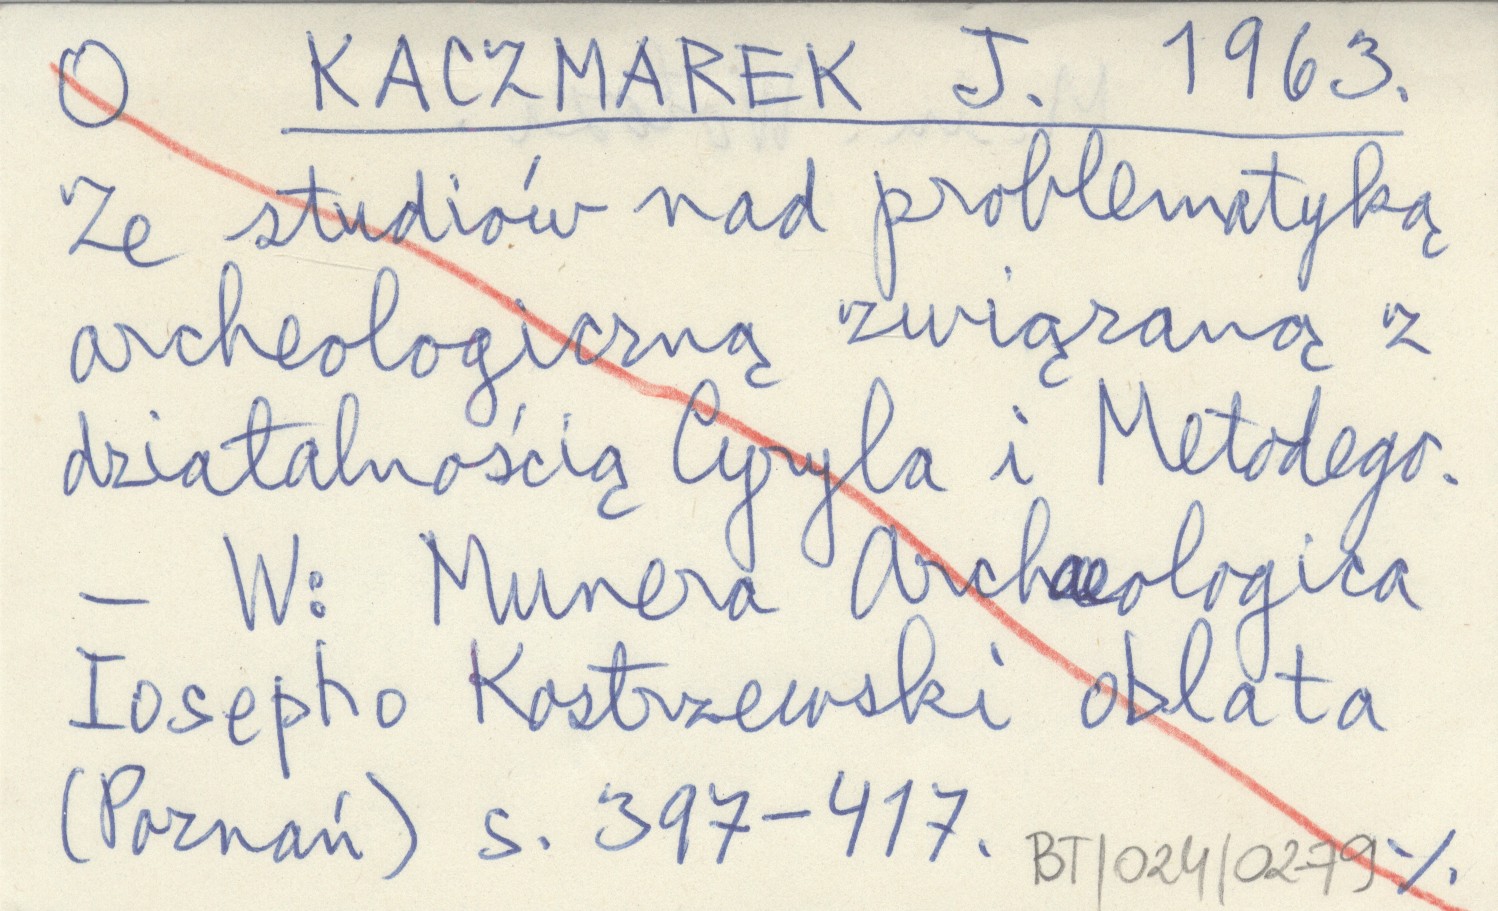 O KACZMAREK J. 1963.
Ze studiów nad problematyką
archeologiczną związaną z
działalnością Cyryla i Metodego.
– W: Munera Archaeologica
Iosepho Kostrzewski oblata
(Poznań) s. 397–417.
BT/024/0279 ·/.